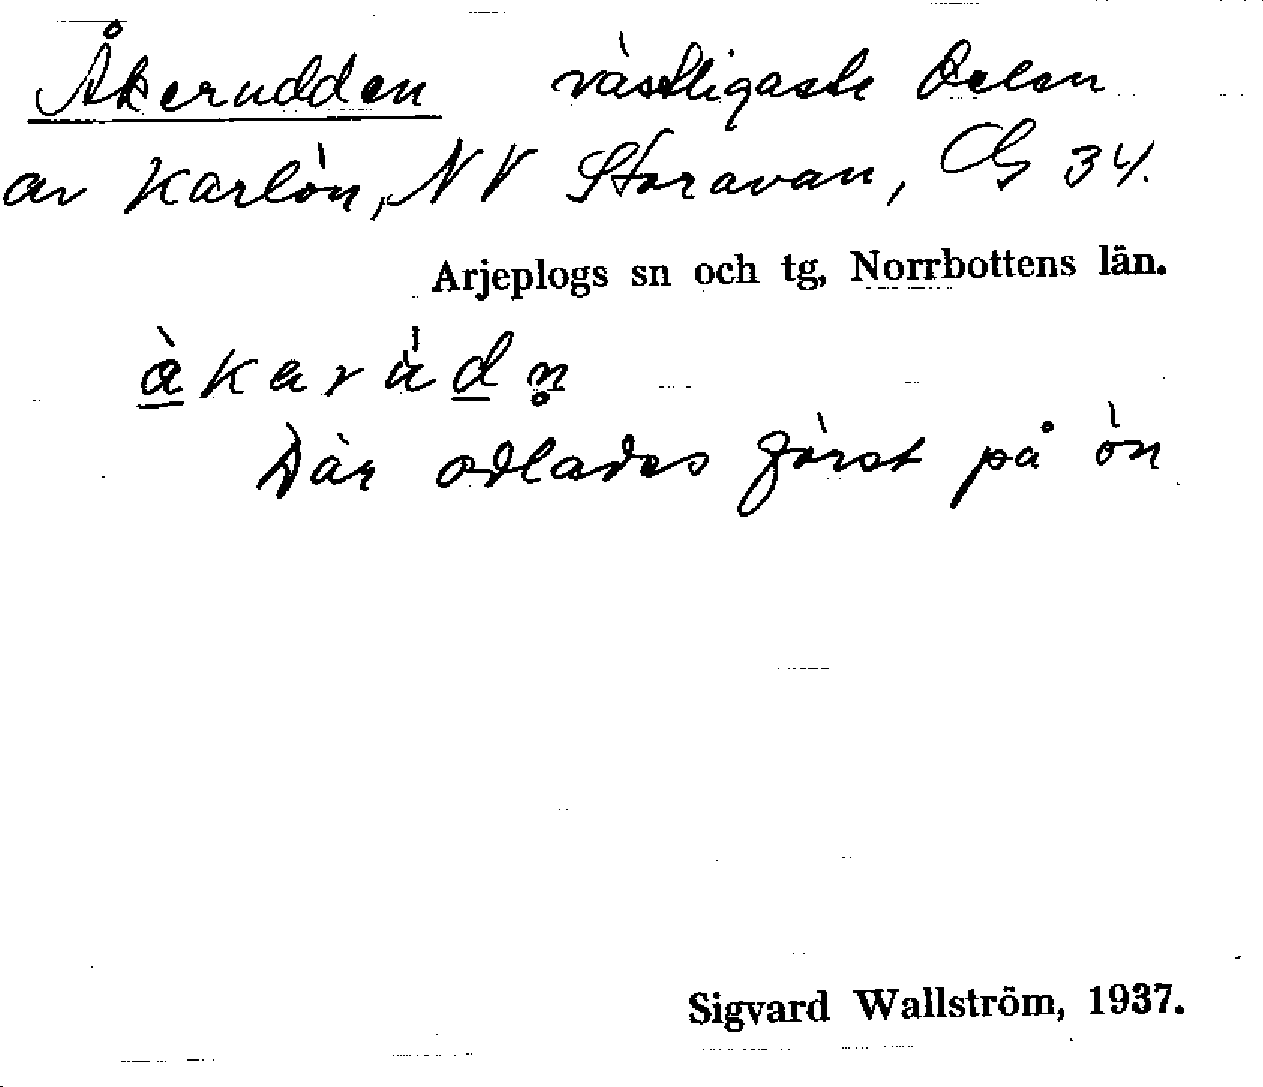 Åkerudden västligaste delen
av Karlön, NV Storavan, CG 34.
Arjeplogs sn och tg, Norrbottens län.
àkarùdn̥
Där odlades först på ön
Sigvard Wallström, 1937.